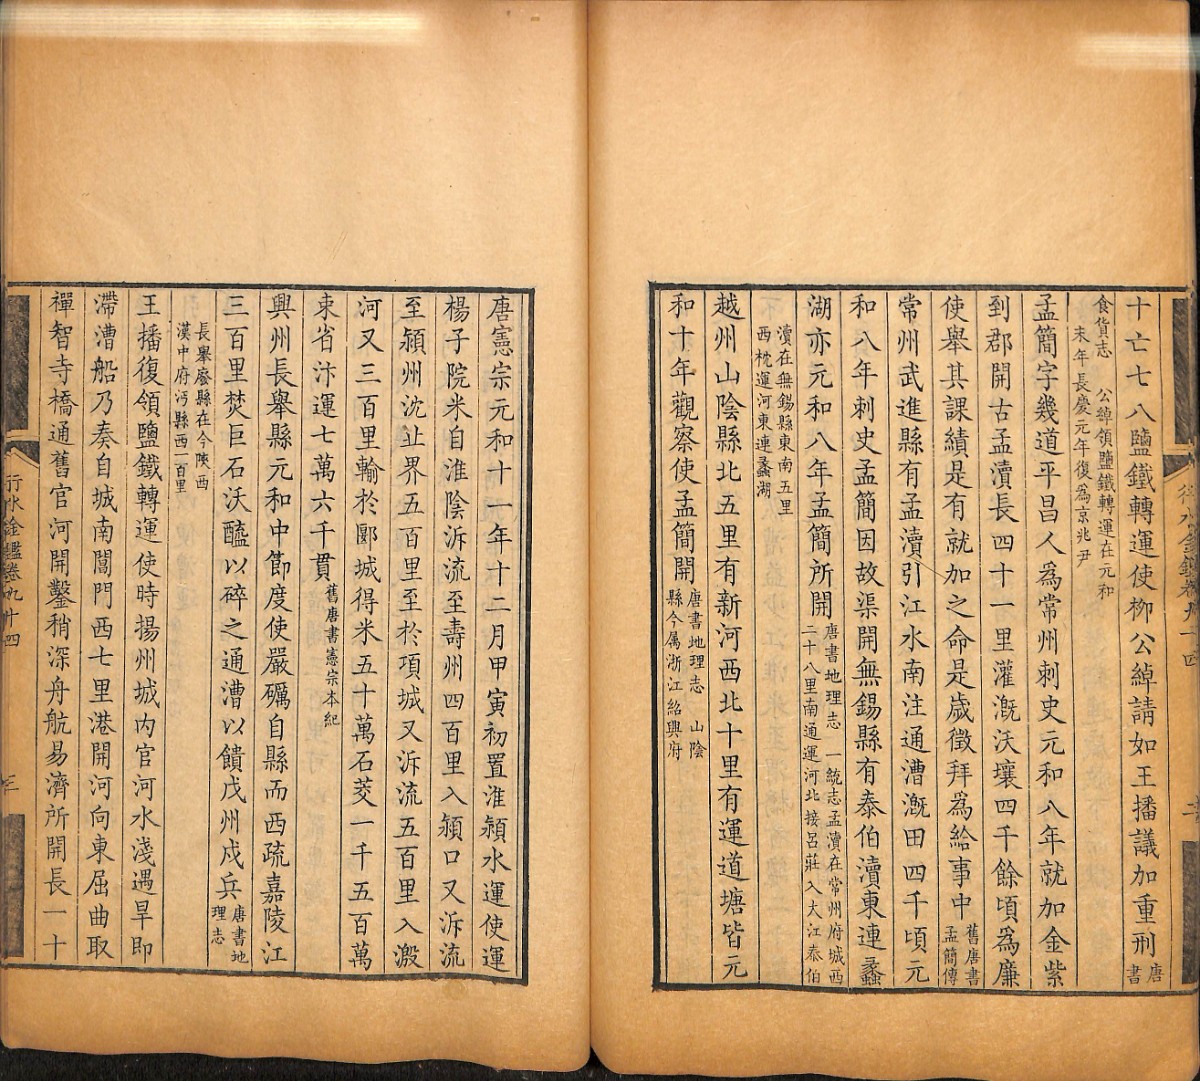 十亡七八鹽鐵轉運使柳公綽請如王播議加重刑唐書
食貨志　公綽領鹽鐵轉運在元和
末年長慶元年復為京兆尹
孟簡字幾道平昌人為常州刺史元和八年就加金紫
到郡開古孟瀆長四十一里灌溉沃壤四千餘頃為廉
使舉其課績是有就加之命是歲徵拜為給事中舊唐書孟簡傳
常州武進縣有孟瀆引江水南注通漕溉田四千頃元
和八年刺史孟簡因故渠開無錫縣有泰伯瀆東連蠡
湖亦元和八年孟簡所開唐書地理志　一統志孟瀆在常州府城西二十八里南通運河北接呂莊入大江泰伯
瀆在無錫縣東南五里
西枕運河東連蠡湖
越州山陰縣北五里有新河西北十里有運道塘皆元
和十年觀察使孟簡開唐書地理志　山陰縣今屬浙江紹興府
唐憲宗元和十一年十二月甲寅初置淮潁水運使運
楊子院米自淮陰泝流至壽州四百里入潁口又泝流
至潁州沈丘界五百里至於項城又泝流五百里入溵
河又三百里輸於郾城得米五十萬石茭一千五百萬
束省汴運七萬六千貫舊唐書憲宗本紀
興州長舉縣元和中節度使嚴礪自縣而西疏嘉陵江
三百里焚巨石沃醯以碎之通漕以饋戍州戍兵唐書地理志
長舉廢縣在今陝西
漢中府沔縣西一百里
王播復領鹽鐵轉運使時揚州城內官河水淺遇旱即
滯漕船乃奏自城南閶門西七里港開河向東屈曲取
禪智寺橋通舊官河開鑿稍深舟航易濟所開長一十
行水金鑑卷九十四
三